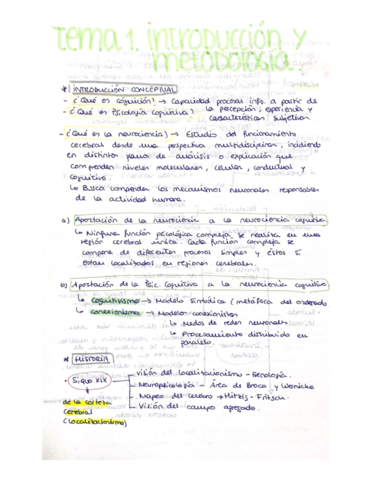 Tema 1. introducción y
metodología.
* INTRODUCCIÓN CONCEPTUAL
- ¿Qué es cognición? → Capacidad procesar info. a partir de
- ¿Qué es Psicología cognitiva? ↳ la percepción, experiencia y
características subjetivas.
- ¿Qué es la neurociencia? → Estudio del funcionamiento
cerebral desde una perspectiva multidisciplinar, incidiendo
en distintos planos de análisis o explicación que
comprenden niveles moleculares, celular, conductual y
cognitivo.
↳ Busca comprender los mecanismos neuronales responsables
de la actividad humana.
a) Aportación de la neurociencia a la neurociencia cognitiva
↳ Ninguna función psicológica compleja se realiza en una
región cerebral única. Cada función compleja se
compone de diferentes procesos simples y éstos sí
están localizados en regiones cerebrales.
b) Aportación de la Psic. cognitiva a la neurociencia cognitiva
↳ cognitivismo → Modelo simbólico (metáfora del ordenador
↳ conexionismo → Modelo conexionista
↳ Redes neuronales
↳ Procesamiento distribuido en
paralelo.
* HISTORIA
- Siglo XIX
→ Visión del localizacionismo - Frenología.
→ Neuropsicología - Área de Broca y Wernicke
→ Mapeo del cerebro → Hitzig - Fritsch.
→ Visión del campo agregado.
de la corteza
cerebral
(localizacionismo)